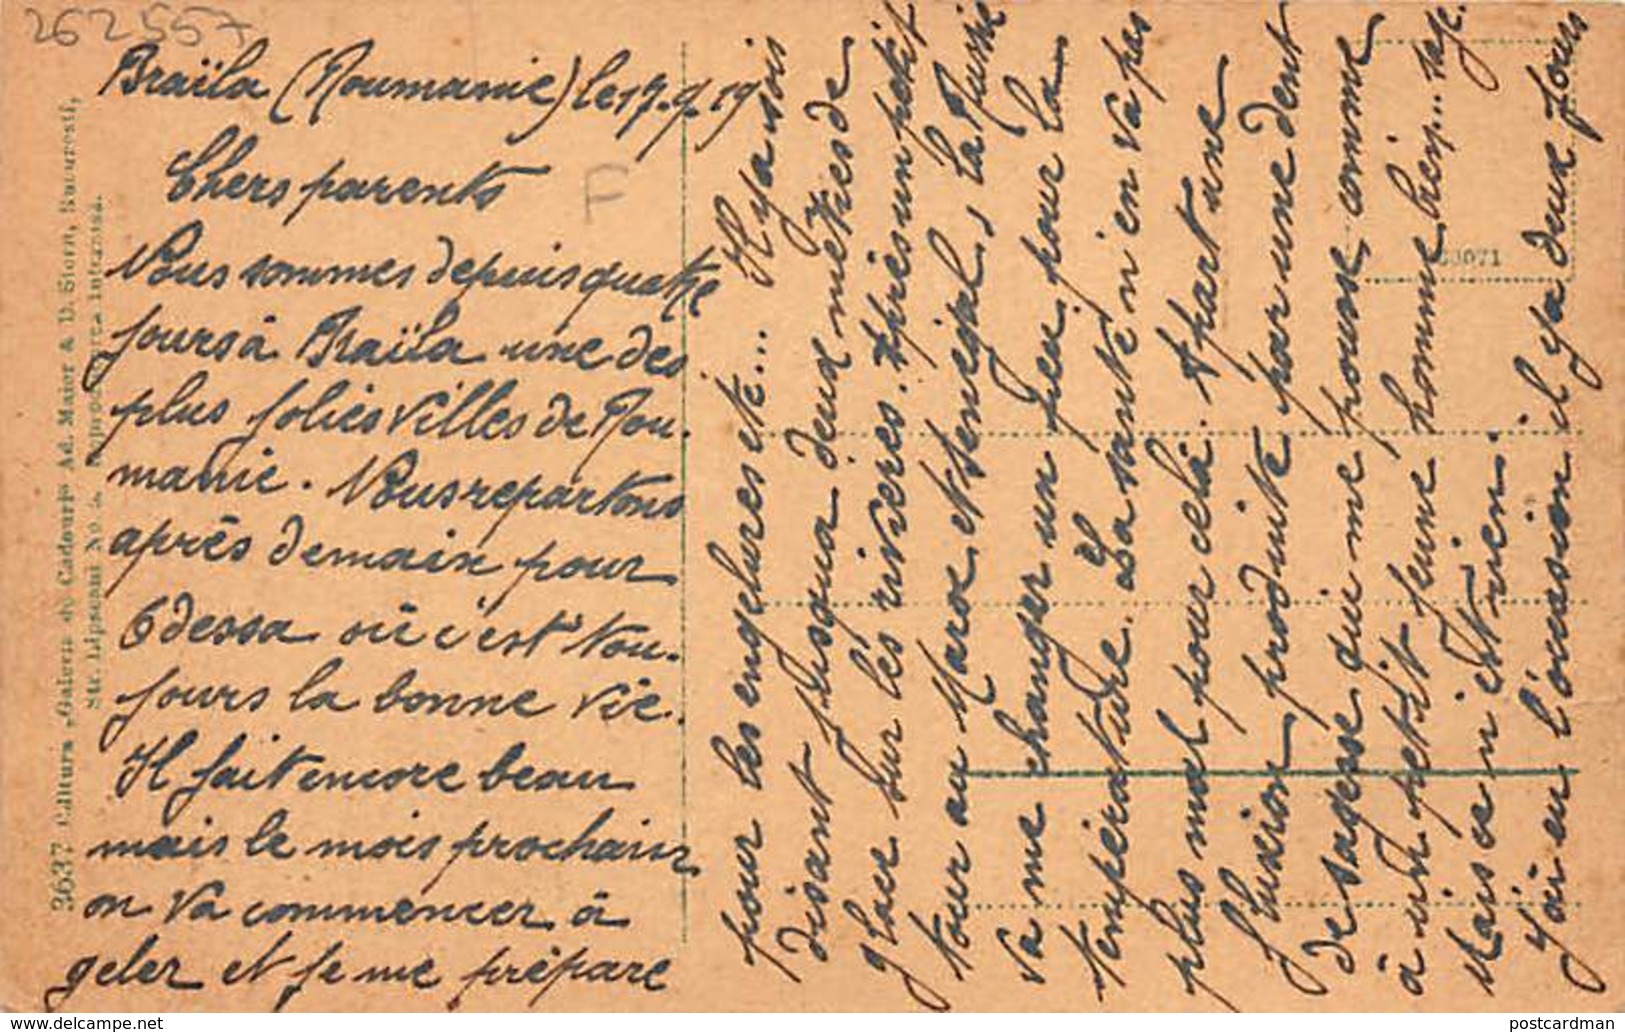 262557
Braïla (Roumanie) le 17.9.19
F
Chers parents
Nous sommes depuis quatre
jours à Braïla une des
plus jolies villes de Rou-
manie. Nous repartons
après demain pour
Odessa où c'est tou-
jours la bonne vie.
Il fait encore beau
mais le mois prochain
on va commencer à
geler et je me prépare
pour les engelures etc... Il y a soi
disant jusqua deux mètres de
glace sur les rivières. Après un petit
tour au Maroc et Sénégal, la Russie
va me changer un peu pour la
température. La santé n'en va pas
plus mal pour cela. Apart une
fluxion produite par une dent
de sagesse qui me pousse, comme
à un petit jeune homme bien... sage.
Mais ce n'est rien.
J'ai eu l'ocassion il y a deux jours
3637 Editura Galeria de Cadouri Ad. Maier & D. Stern, Bucuresti,
Str. Lipscani No.
Reproducerea interzisa.
63071
www.delcampe.net
postcardman